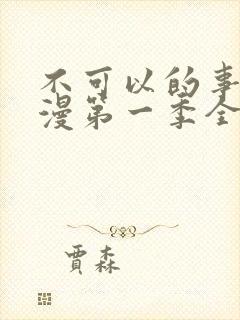 不可以的事
漫第一季全
贾森